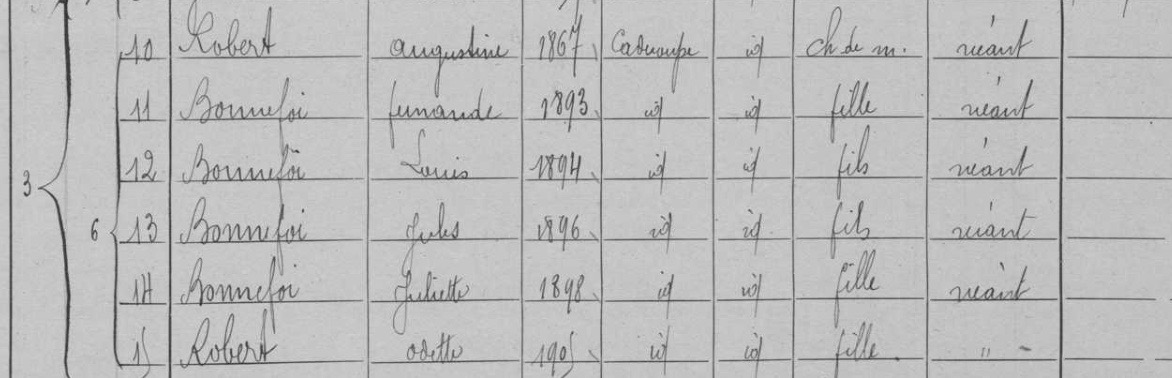 10 Robert augustine 1867 Cadouape id ch de m. néant
11 Bonnefoi fernande 1893 id id fille néant
12 Bonnefoi Louis 1894 id id fils néant
3 6 13 Bonnefoi Jules 1896 id id fils néant
14 Bonnefoi Juliette 1898 id id fille néant
15 Robert odette 1905 id id fille. " -